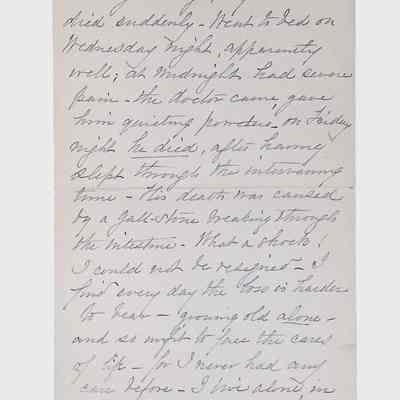 died suddenly - Went to bed on
Wednesday night, apparently
well; at midnight had severe
pain - the doctor came, gave
him quieting powders - on Friday
night he died, after having
slept through the intervening
time - His death was caused
by a gall-stone breaking through
the intestine - What a shock!
I could not be resigned - I
find every day the loss is harder
to bear - growing old alone -
and so unfit to face the cares
of life - for I never had any
care before - I live alone, in